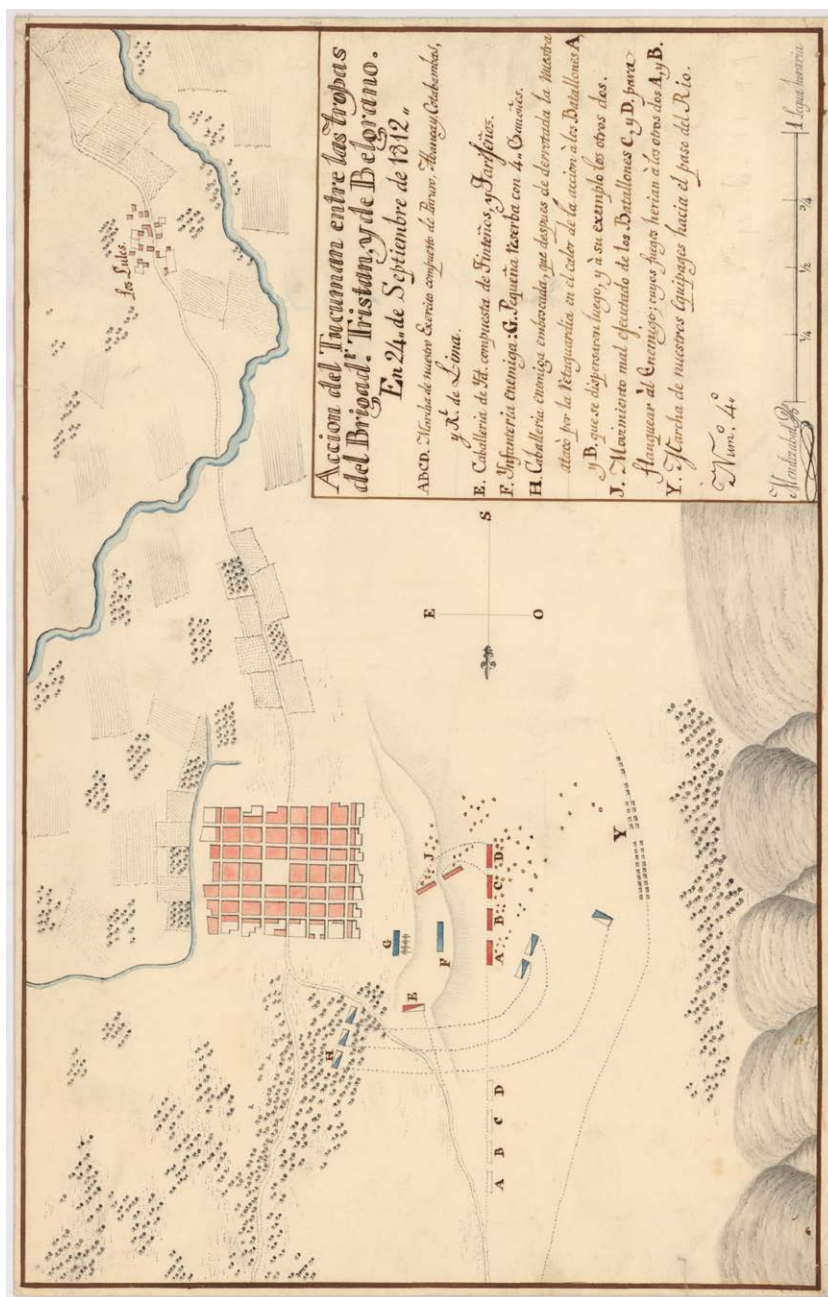 Accion del Tucuman entre las tropas
del Brigad.r Tristan, y de Belgrano.
En 24,, de Septiembre de 1812,,
ABCD. Marcha de nuestro Exercito compuesto de Abancay, Cotabambas,
y R.l de Lima.
E. Caballeria de Yd. compuesta de Tinteños, y Tarijeños.
F. Ynfanteria enemiga: G. Pequeña reserba con 4,, Cañones.
H. Caballeria enemiga emboscada, que despues de derrotada la nuestra
atacò por la Retaguardia en el calor de la accion à los Batallones A,
y B, que se dispersaron luego, y à su exemplo los otros dos.
J. Movimiento mal ejecutado de los Batallones C, y D, para
flanquear àl Enemigo; cuyos fuegos herian à los otros dos A, y B.
Y. Marcha de nuestros Equipages hacia el paso del Rio.
Num.o 4.o
Mendizabal
1/4
1/2
3/4
1 legua horaria
los Lules.
E
S
O
G
F
E
H
J
A
B
C
D
Y
A B C D